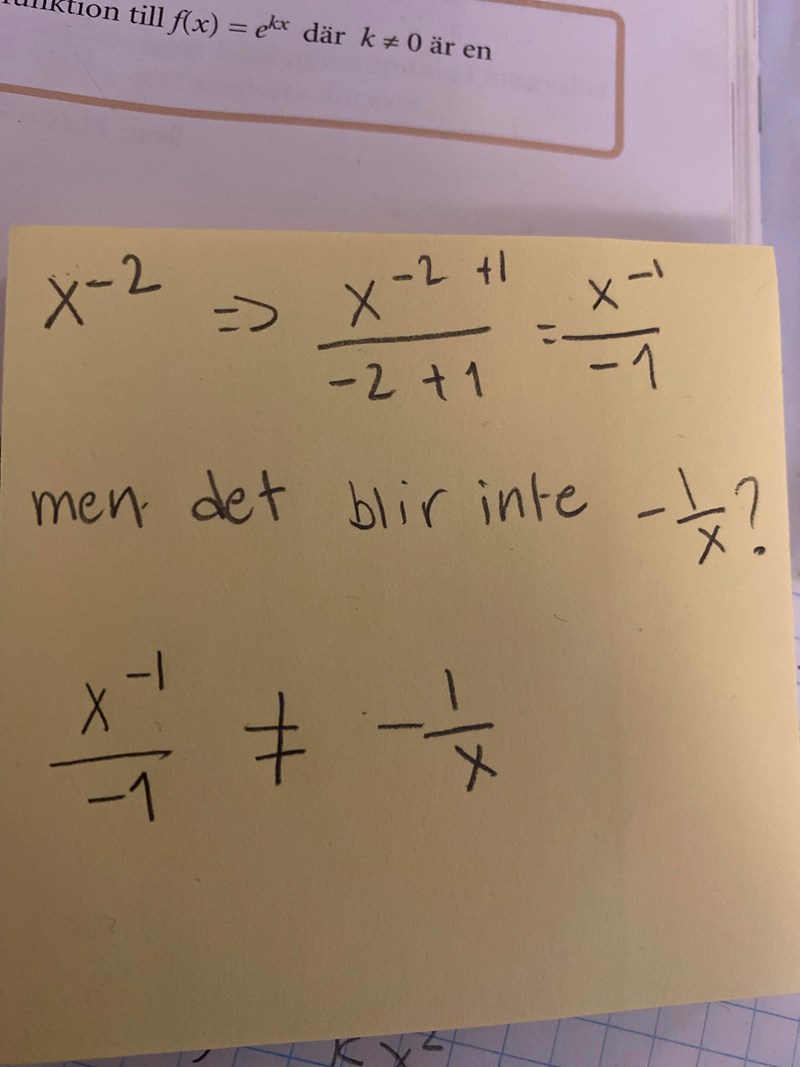 funktion till f(x) = e^{kx} där k ≠ 0 är en
x^{-2} => \frac{x^{-2+1}}{-2+1} = \frac{x^{-1}}{-1}
men det blir inte -\frac{1}{x}?
\frac{x^{-1}}{-1} ≠ -\frac{1}{x}